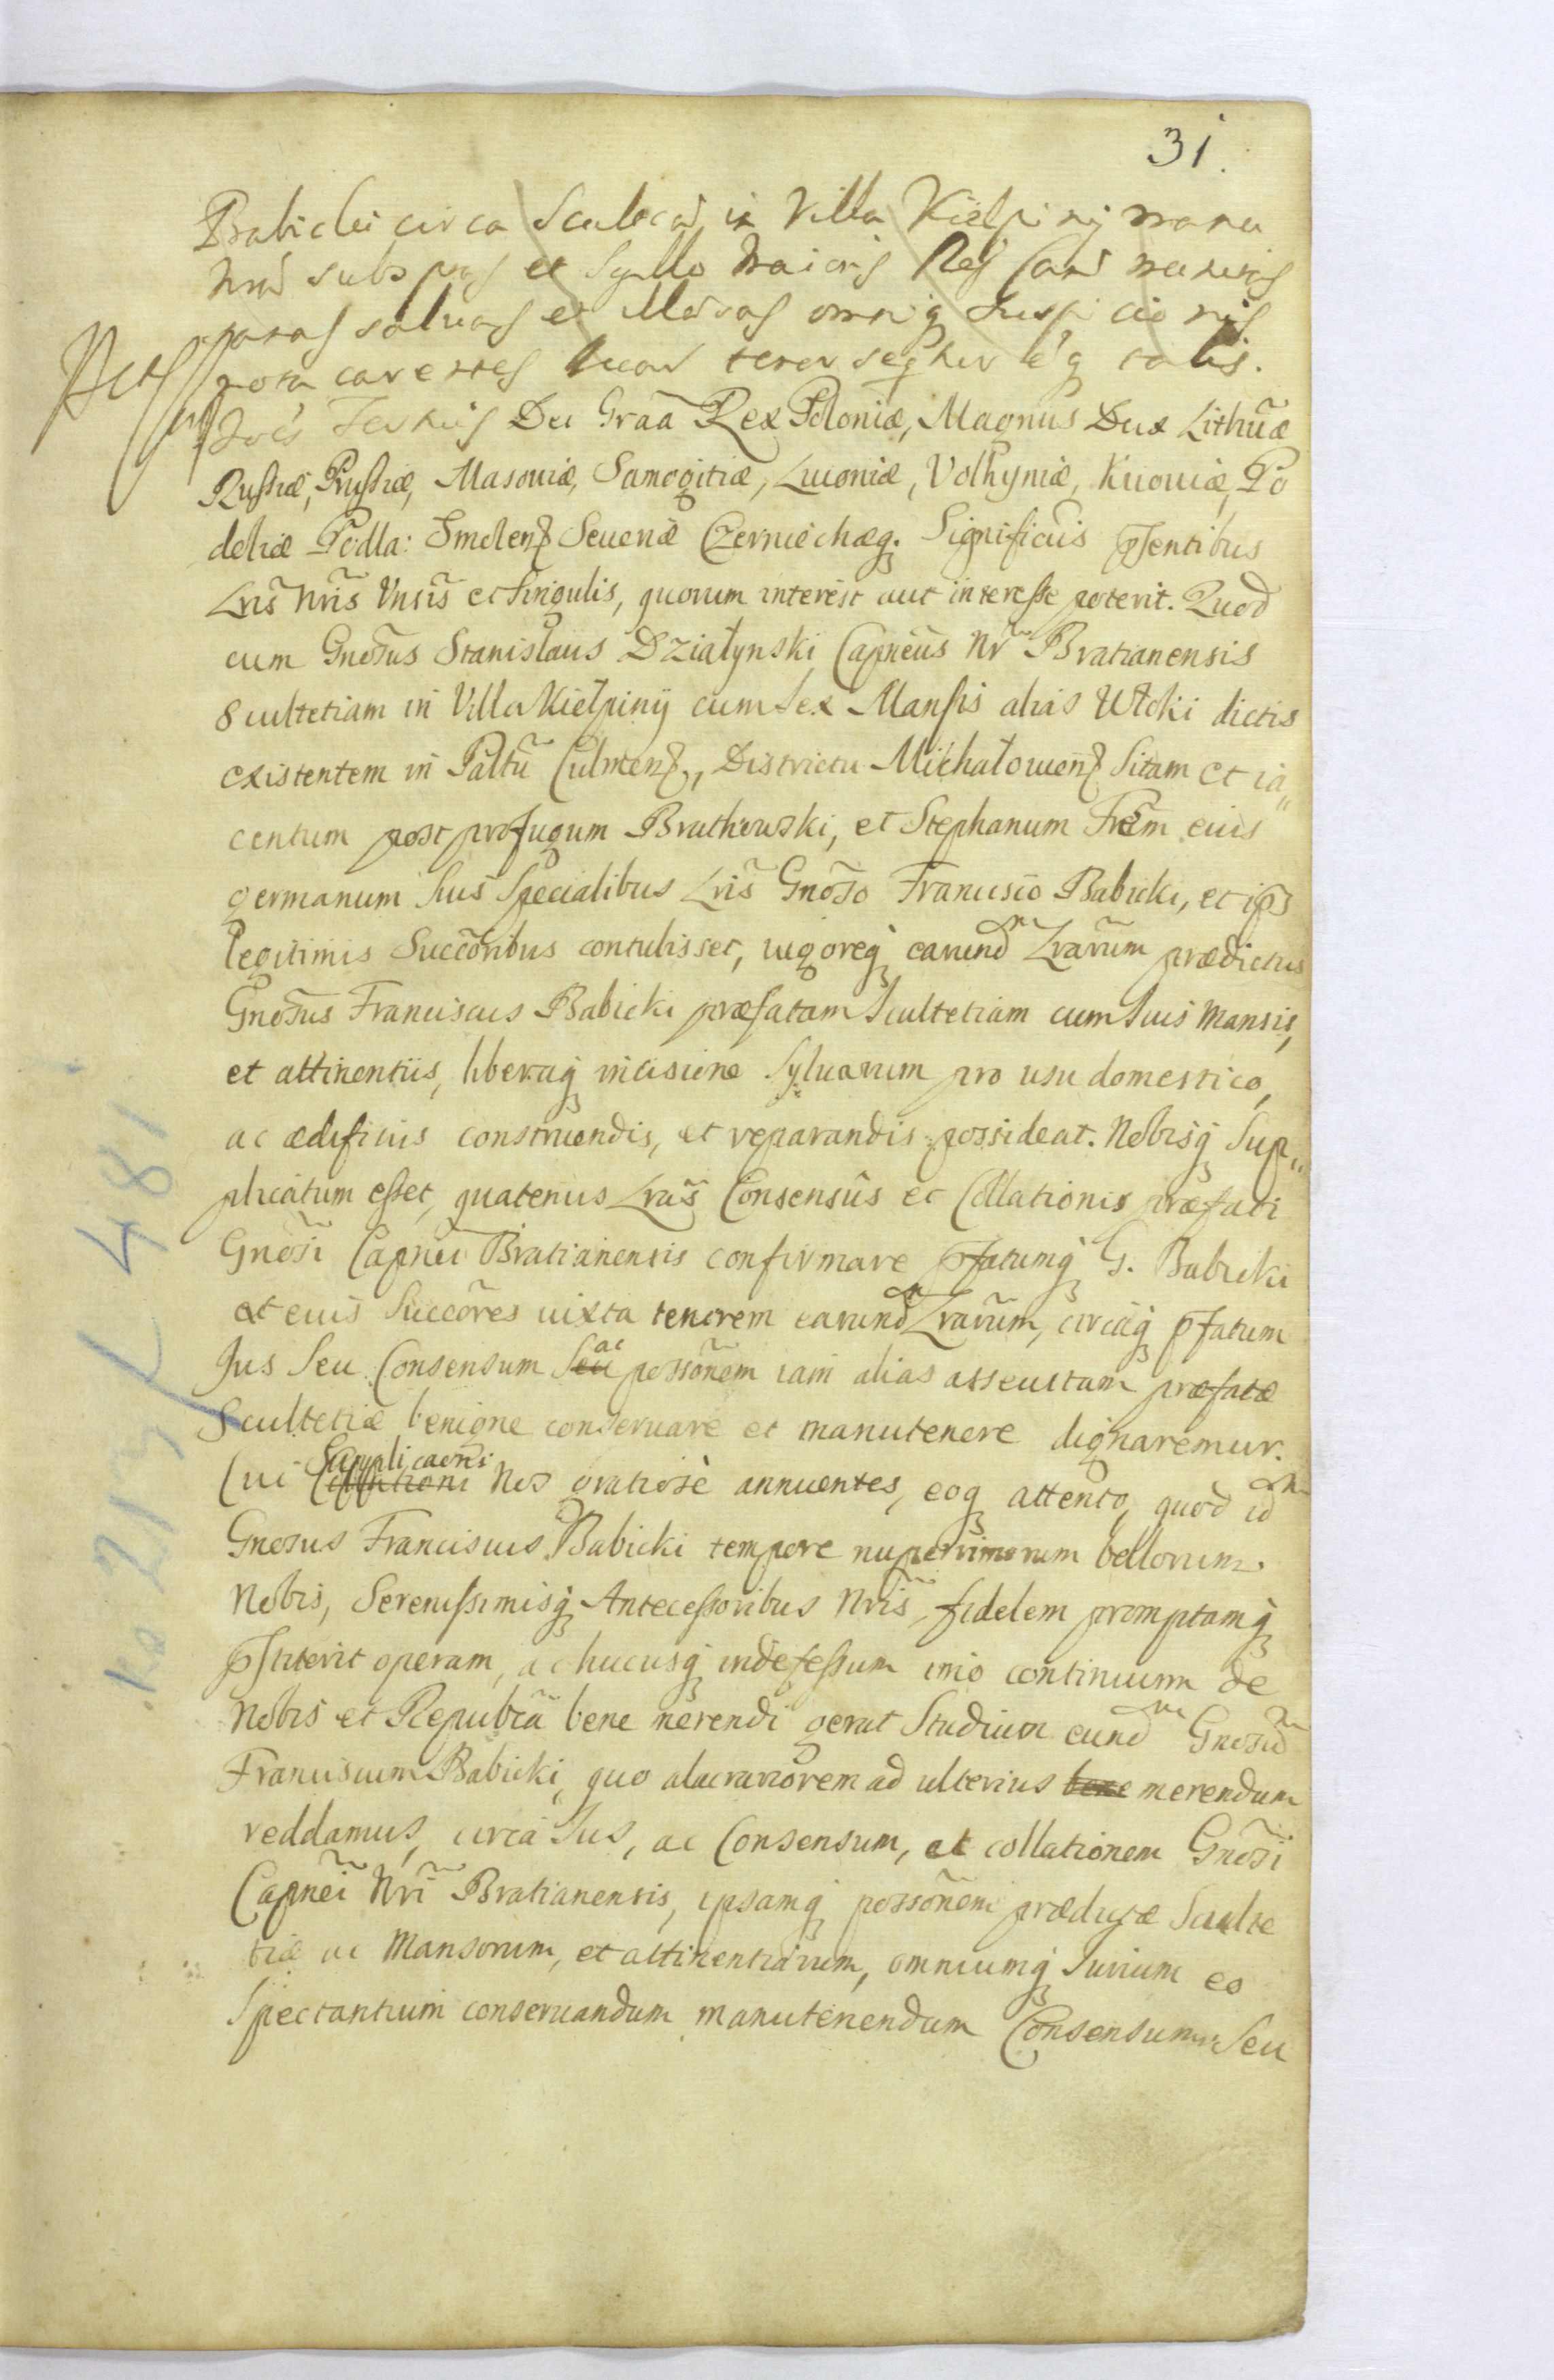 31.
Babicki circa Scultetiã in Villa Kiełpiny manu
nrã subscriptas et Sigillo Maioris Cancell. munitas
sanas saluas et illaesas omniq́ Suspicionis
nota carentes quar tenor seqtur éq talis.
Joẽs Tertius Dei Graã Rex Poloniæ, Magnus Dux Lithuæ
Russiæ, Prussiæ, Masouiæ, Samogitiæ, Liuoniæ, Volhyniæ, Kiiouiæ, Po
doliæ Podla: Smolenß Seueriæ Czerniechæq́. Significus pñtibus
Lris Nris Vnsis et Singulis, quorum interest aut interesse poterit. Quod
cum Gnosus Stanislaus Działynski Capneus Nr Bratianensis
Scultetiam in Villa Kiełpiny cum Sex Mansis alias Włoki dictis
existentem in Paltũ Culmenß, Districtu Michałouienß Sitam et ia„
centum post profugum Bruthowski, et Stephanum Frẽm eius
germanum Suis Specialibus Lris Gnoso Francisco Babicki, et ips
legitimis Succoribus contulisset, uigoreq́ earundm Lrarum prædictus
Gnosus Franciscus Babicki præfatam Scultetiam cum Suis Mansis,
et attinentiis, liberaq́ incisione Syluarum pro usu domestico,
ac ædificiis construendis, et reparandis possideat. Nobisq́ Sup„
plicatum esset, quatenus Lras Consensûs et Collationis præfati
Gnosi Capnei Bratianensis confirmare pfatumq́ G. Babicki
et eius Succores iuxta tenorem earundm Lrarum, circaq́ pfatum
Jus Seu Consensum Seu ac possonem iam alias assecutam præfatæ
Scultetiæ benigne conseruare et manutenere dignaremur.
Cui Supplicaoni Nos gratiosè annuentes, eoq́ attento, quod idm
Gnosus Franciscus Babicki tempore nuperrimorum bellorum
Nobis, Serenissimisq́ Antecessoribus Nris, fidelem promptamq́
pstiterit operam, ac hucusq́ indefessum imo continuum de
Nobis et Republcã bene merendi gerat Studium eundm Gnosum
Franciscum Babicki, quo alacriorem ad ulterius bene merendum
reddamus, circa Jus, ac Consensum, et collationem Gnosi
Capnei Nri Bratianensis, ipsamq́ possonem prædictæ Sculte
tiæ ac Mansorum, et attinentiarum, omniumq́ Jurium eo
Spectantium conseruandum manutenendum Consensum Seu